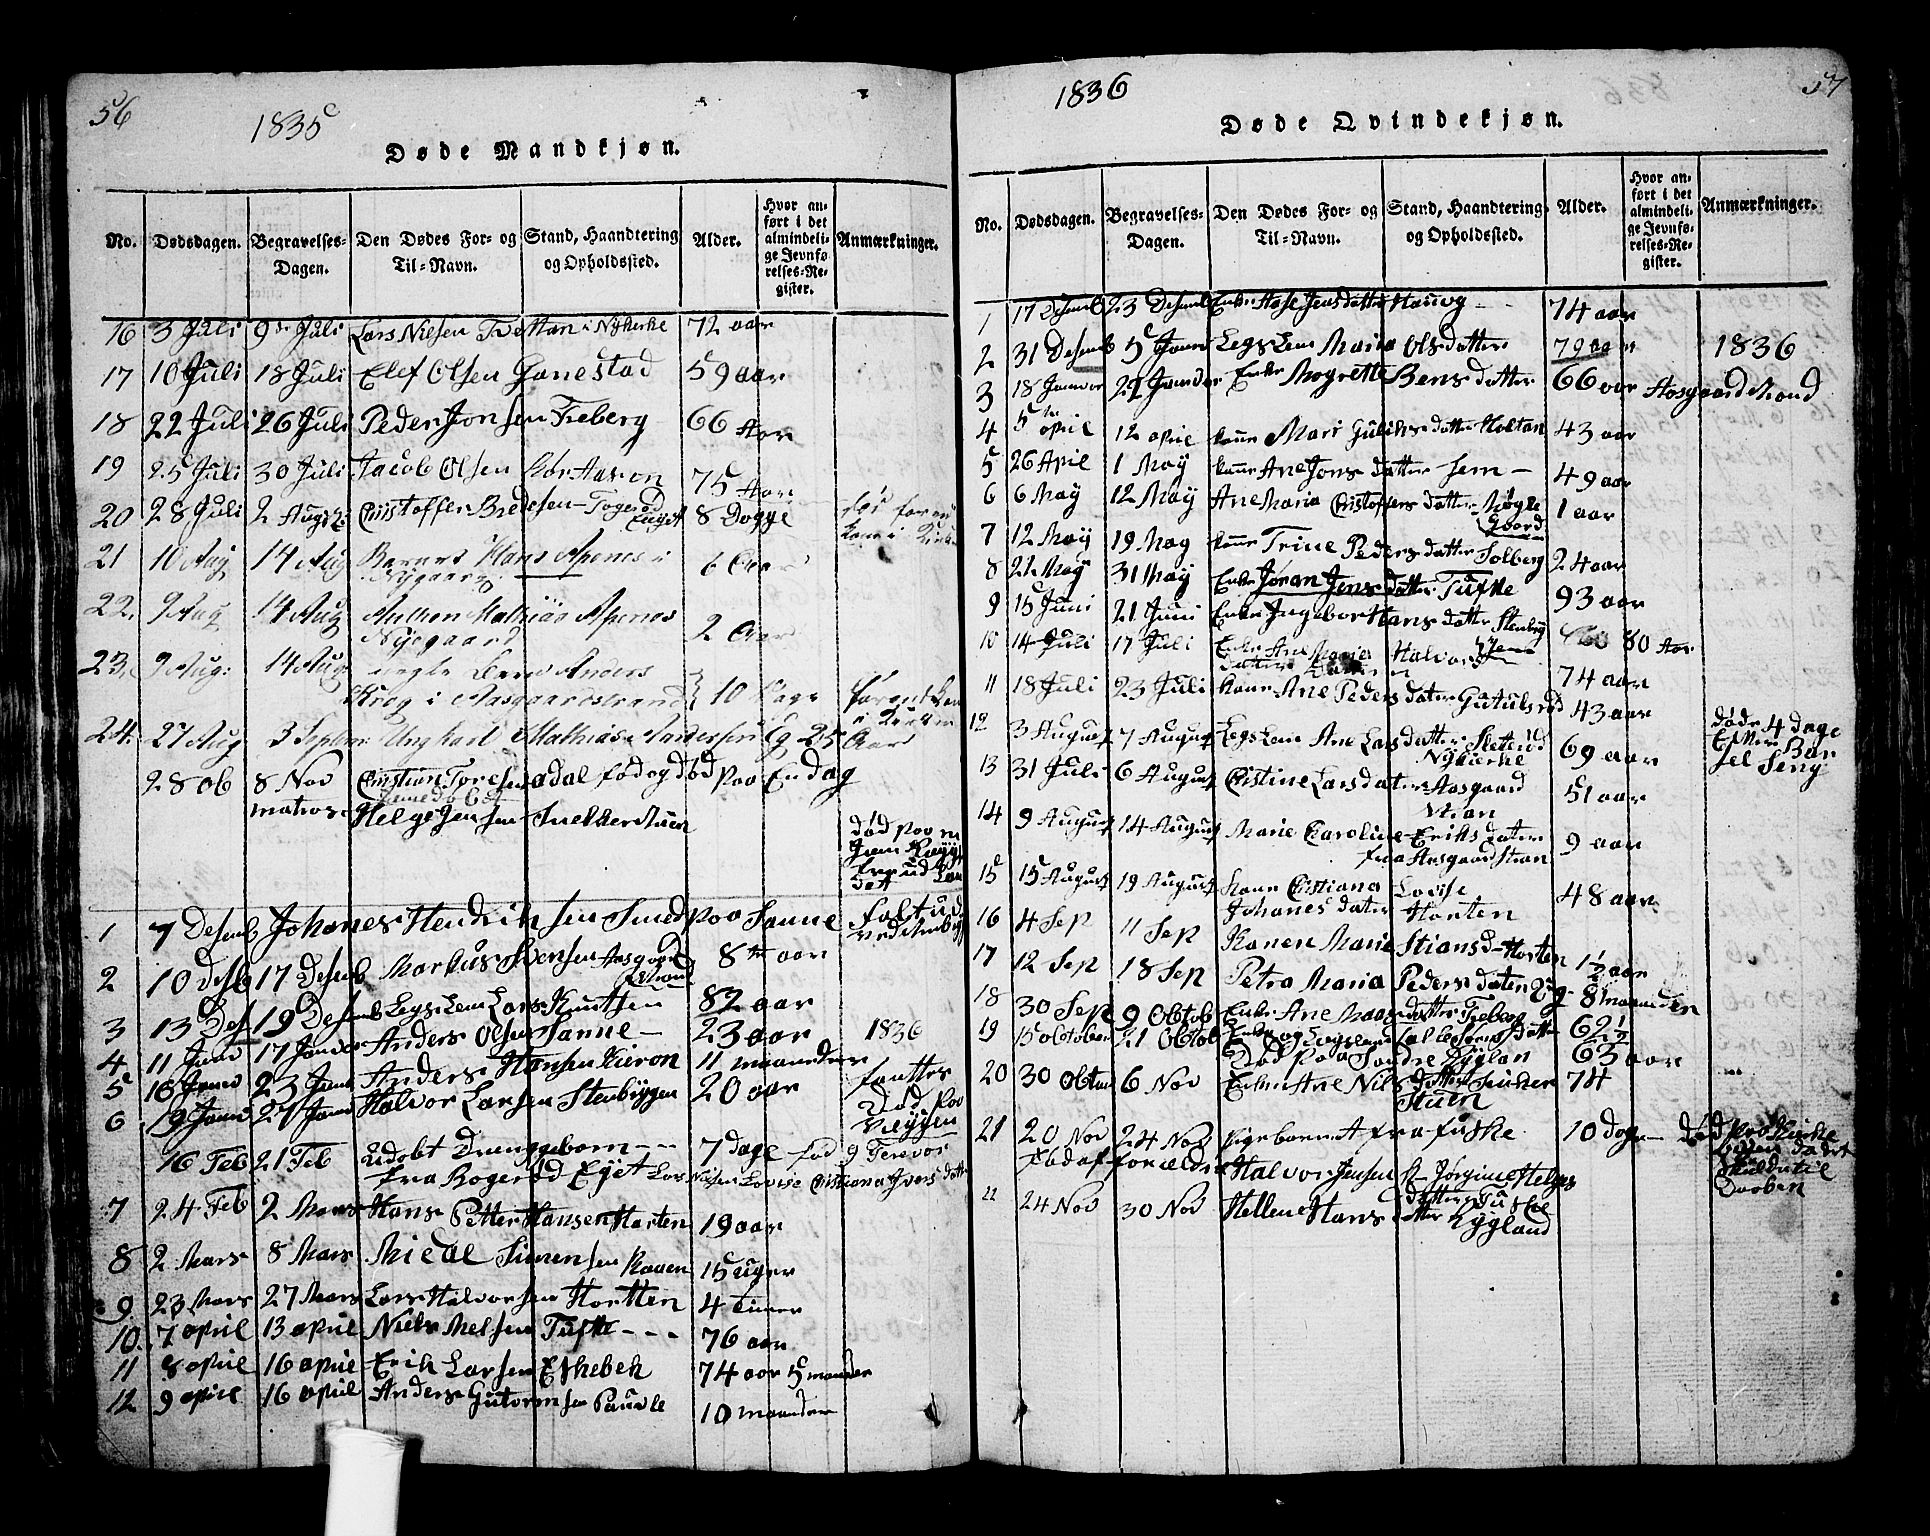 56
1835
Døde Mandkjøn.
No. Dødsdagen. Begravelses-Dagen. Den Dødes For- og Til-Navn. Stand, Haandtering og Opholdssted. Alder. Hvor anført i det almindelige Jevnførelses-Register. Anmærkninger.
16 3 Juli 9de Juli Lars Nilsen Trettan i Nykirke 72 aar
17 10 Juli 18 Juli Elef Olsen Ganestad 59 aar
18 22 Juli 26 Juli Peder Jonsen Freberg 66 Aar
19 25 Juli 30 Juli Jacob Olsen 75 Aar
20 28 Juli 2 August Cristoffer Bredesen Togerød Eiyet 8 Dogge
21 10 Aug 14 Aug Barnet Hans Apenes i Nygaard 6 Aar
22. 9 Aug 14 Aug Mathias Apenes Nyegaard 2 Aar
23. 9 Aug: 14 Aug Anders Krog i Aasgaardstrand 10 Dage
24. 27 Aug 3 Septem: Ungkarl Mathias Andersen 25 Aar
28 Ob 8 Nov Cristian Toresen Adal fød og død paa En dag
matros Helge Jensen Snekkerstuen
død paa en
1 7 Desemb Johanes Hendriksen Smed paa Sanne falt ud
2 10 Desb 17 Desemb Markus Svensen Aasgaard Strand 8te aar
3 13 Des 19 Desemb Legs Lem Lars Knutsen 82 aar
4 11 Janv 17 Janvar Anders Olsen Sanne — 23 aar 1836
5 16 Janv 23 Janv Anders Hansen Kieron 11 maander
6 19 Janv 27 Janv Halvor Larsen Stenbyggen 20 aar
Død paa Væygen
16 Feb 21 Feb Udøbt Drenggebarn --- 7 dage fød 9 Ferevar
fra Rogerød Eyet Lars Nilsen Lovise Cristiana Ivers datter
7 24 Feb 2 Mars Hans Petter Hansen Horten 19 aar
8 2 Mars 8 Mars Simensen Raaen 15 uger
9 23 Mars 27 Mars Lars Halvorsen Hortten 4 timer
10. 7 april 13 april Niels Melsen Tufte --- 76 aar
11 8 april 16 april Erik Larsen Eskebek 74 aar 5 maander
12 9 april 16 april Anders Gutormsen Pauvle 10 maander
1836
57
Døde Qvindekjøn.
No. Dødsdagen. Begravelses-Dagen. Den Dødes For- og Til-Navn. Stand, Haandtering og Opholdssted. Alder. Hvor anført i det almindelige Jevnførelses-Register. Anmærkninger.
1 17 Desemb 23 Desemb Enke Aase Jensdatter Haaug -- 74 aar
2 31 Desemb 5 Janv Legs Lem Maria Olsdatter 79 aar 1836
3 18 Janvar 22 Janvar Enke Magrette Bensdatter 66 aar Aasgaardstrand
4 5te april 12 april kone Mari Guliksdatter Holtan 43 aar
5 26 April 1 May kone Ane Jonsdatter Sem — 49 aar
6 6 May 12 May Ane Maria Cristoffersdatter Møgle Gaard 1 aar
7 12 May 19 May kone Trine Pedersdatter Solberg 24 aar
8 21 May 31 May Enke Jøran Jensdatter Tufte 93 aar
9 15 Juni 21 Juni Enke Ingebor Hansdatter Stenbyg 80 Aar
10 14 Juli 17 Juli Enke Ane Maria Halvorsdatter 74 aar
11 18 Juli 23 Juli kone Ane Pedersdatter Gutulsrød 43 aar døde 4 dage Efter Barsel Seng
12 3 August 7 August Legs Lem Ane Larsdatter Sletterød Nykirke 69 aar
13 31 Juli 6 August Cistine Larsdater Aasgaard Stran 51 aar
14 9 August 14 August Marie Caroline Eriksdater fra Aasgaardstran 9 aar
15 15 August 19 August kone Cristiana Lovise Johanesdater Horten 48 aar
16 4 Sep 11 Sep Karen Marie Stiansd- Horten 1½ aar
17 12 Sep 18 Sep Petra Maria Pedersdater 8 maander
18 30 Sep 9 Obtob Enke Ane Maasdatter Freberg 62½
19 15 obtober 21 Obtob Enke og Legslem Salle Sørens datter 63 aar
Død paa Søndre Røglan
20 30 obtber 6 Nov Enke Ane Nilsdatter Snekerstuen 74
21 20 Nov 24 Nov Pigebarnet fra fuske 10 dage død
fød af foreldre Halvor Jensen & Jørgine Helges datter
22 24 Nov 30 Nov Hellene Hans datter Rygland